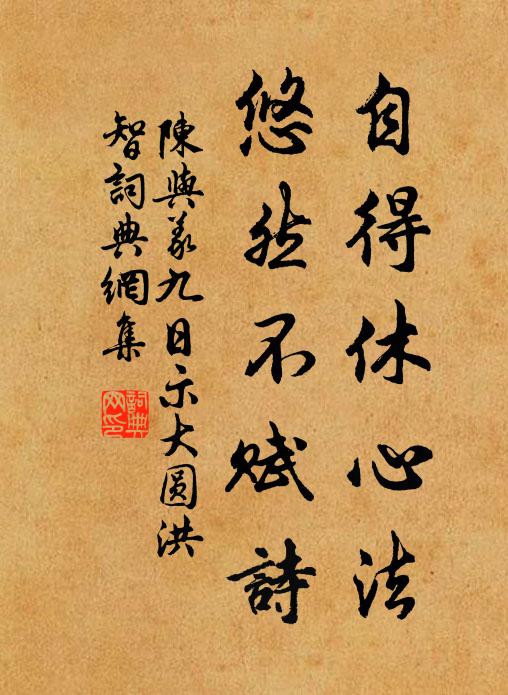 自得休心法
悠然不赋詩
陳與義九日示大圓洪
智詞典網集
詞典网印